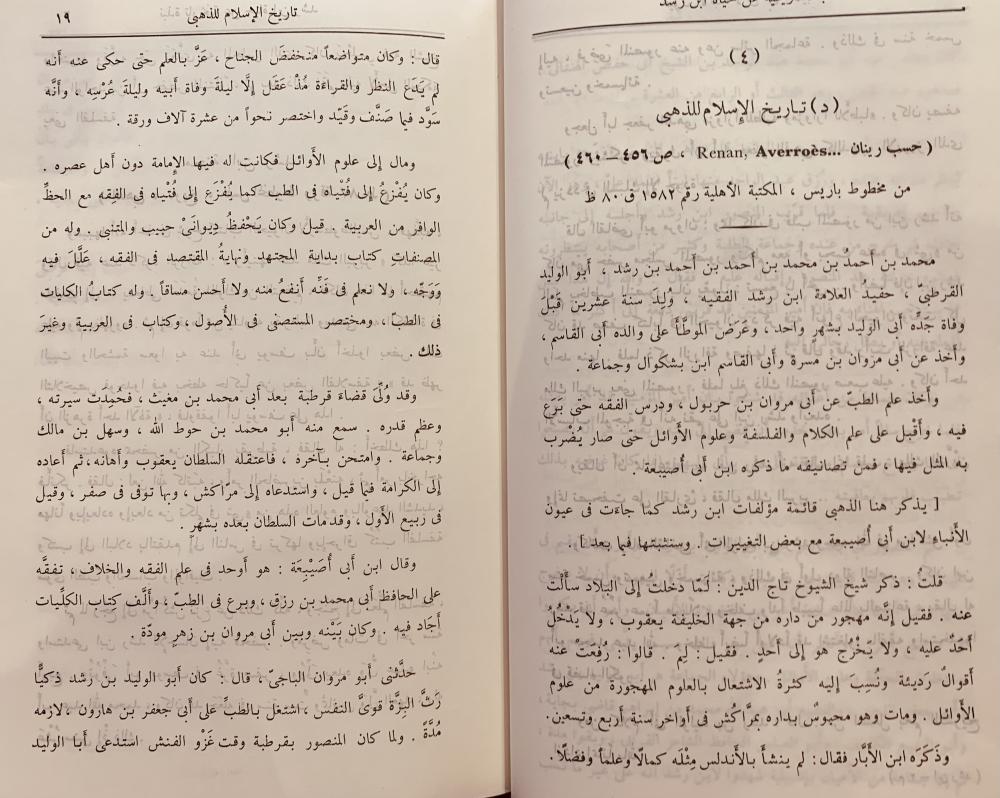 من حياة ابن رشد
(٤)
(د) تاريخ الإسلام للذهبى
(حسب رينان Renan, Averroès... ، ص ٤٥٦ – ٤٦٠)
من مخطوط باريس ، المكتبة الأهلية رقم ١٥٨٢ ق ٨٠ ظ
محمد بن أحمدُ بن محمد بن أحمد بن أحمد بن رشد ، أبو الوليد
القرطبىّ ، حفيدُ العلامة ابن رشد الفقيه ، وُلِدَ سنة عشرين قَبْلَ
وفاة جَدِّه أبى الوليد بشهرٍ واحد ، وعَرَضَ الموطّأَ على والده أبى القاسم ،
وأخذ عن أبى مروان بن مسرة وأبى القاسم ابن بشكوال وجماعة .
وأخذ علم الطبّ عن أبى مروان بن حربول ، ودرس الفقه حتى بَرَع
فيه ، وأقْبل على علم الكلام والفلسفة وعلوم الأَوائل حتى صار يُضْرب
به المثل فيها ، فمن تصانيفه ما ذكره ابن أبى أُصَيبعة .
[ يذكر هنا الذهبى قائمة مؤلفات ابن رشد كما جاءَت فى عيون
الأَنباء لابن أبى أُصيبعة مع بعض التغييرات . وسنثبتها فيما بعد ] .
قلتُ : ذكر شيخ الشيوخ تاج الدين : لَمّا دخلتُ إلى البلاد سأَلْت
عنه . فقيل إنَّه مهجور من داره من جهة الخليفة يعقوب ، ولا يَدْخُلُ
أَحَدٌ عليه ، ولا يَخْرُج هو إلى أحدٍ . فقيل : لِمَ . قالوا : رُفِعَتْ عنه
أقوالٌ رَديئة ونُسِبَ إليه كثرةُ الاشتعال بالعلوم المهجورة من علوم
الأَوائل . ومات وهو محبوسٌ بداره بمرَّاكُش فى أواخر سنة أربع وتسعين.
وذَكَرَه ابن الأَبَّار فقال : لم ينشأ بالأَندلس مِثْلَه كمالًا وعلماً وفضلًا.
تاريخ الإسلام للذهبى
١٩
قال : وكان متواضعاً منخفضَ الجناح ، عَزَّ بالعلم حتى حكى عنه أنه
لم يَدَع النظر والقراءة مُذْ عَقَل إلَّا ليلةَ وفاة أبيه وليلةَ عُرْسِه ، وأنَّه
سَوَّد فيما صَنَّف وقَيّد واختصر نحواً من عشرة آلاف ورقة .
ومال إلى علوم الأَوائل فكانت له فيها الإمامة دون أهل عصره .
وكان يُفْزعُ إلى فُتْياه فى الطب كما يُفْزَع إلى فُتْياه فى الفِقه مع الحظِّ
الوافر من العربية . قيل وكان يَحْفظُ دِيوانَىْ حبيب والمتنبى . وله من
المصنفاتِ كتاب بداية المجتهد ونهايةُ المقتصد فى الفقه ، عَلَّلَ فيه
وَوَجّه ، ولا نعلم فى فَنِّه أَنفعُ منه ولا أحسن مساقاً . وله كتابُ الكليات
فى الطبّ ، ومختصر المستصفى فى الأُصول ، وكتاب فى العربية وغيرَ
ذلك .
وقد وُلِّىَ قضاءَ قرطبة بعد أبى محمد بن مغيث ، فحُمِدت سيرته ،
وعظم قدره . سمع منه أَبو محمد بن حوط الله ، وسهل بن مالك
وجماعة . وامتحن بآخرة ، فاعتقله السلطان يعقوب وأهانه ، ثم أعاده
إلى الكرامة فيما قيل ، واستدعاه إلى مرّاكش ، وبها توفى فى صفر ، وقيل
فى ربيع الأَوّل ، وقد مات السلطان بعده بشهرٍ .
وقال ابن أبى أُصَيْبِعَة : هو أوحد فى علم الفقه والخلاف ، تفقَّه
على الحافظ أبى محمد بن رزق ، وبرع فى الطبّ ، وألّف كتاب الكلِّيات
أجَاد فيه . وكان بَيْنه وبين أبى مروان بن زهرٍ مودّة .
حدَّثنى أبو مروان الباجىّ ، قال : كان أبو الوليد بن رشد ذكيًّا
رَثَّ البِزَّة قوىَّ النفس ، اشتغل بالطبِّ على أبى جعفر بن هارون ، لازمه
مُدّةً . ولما كان المنصور بقرطبة وقت غَزْوِ الفنش استدعى أبا الوليد